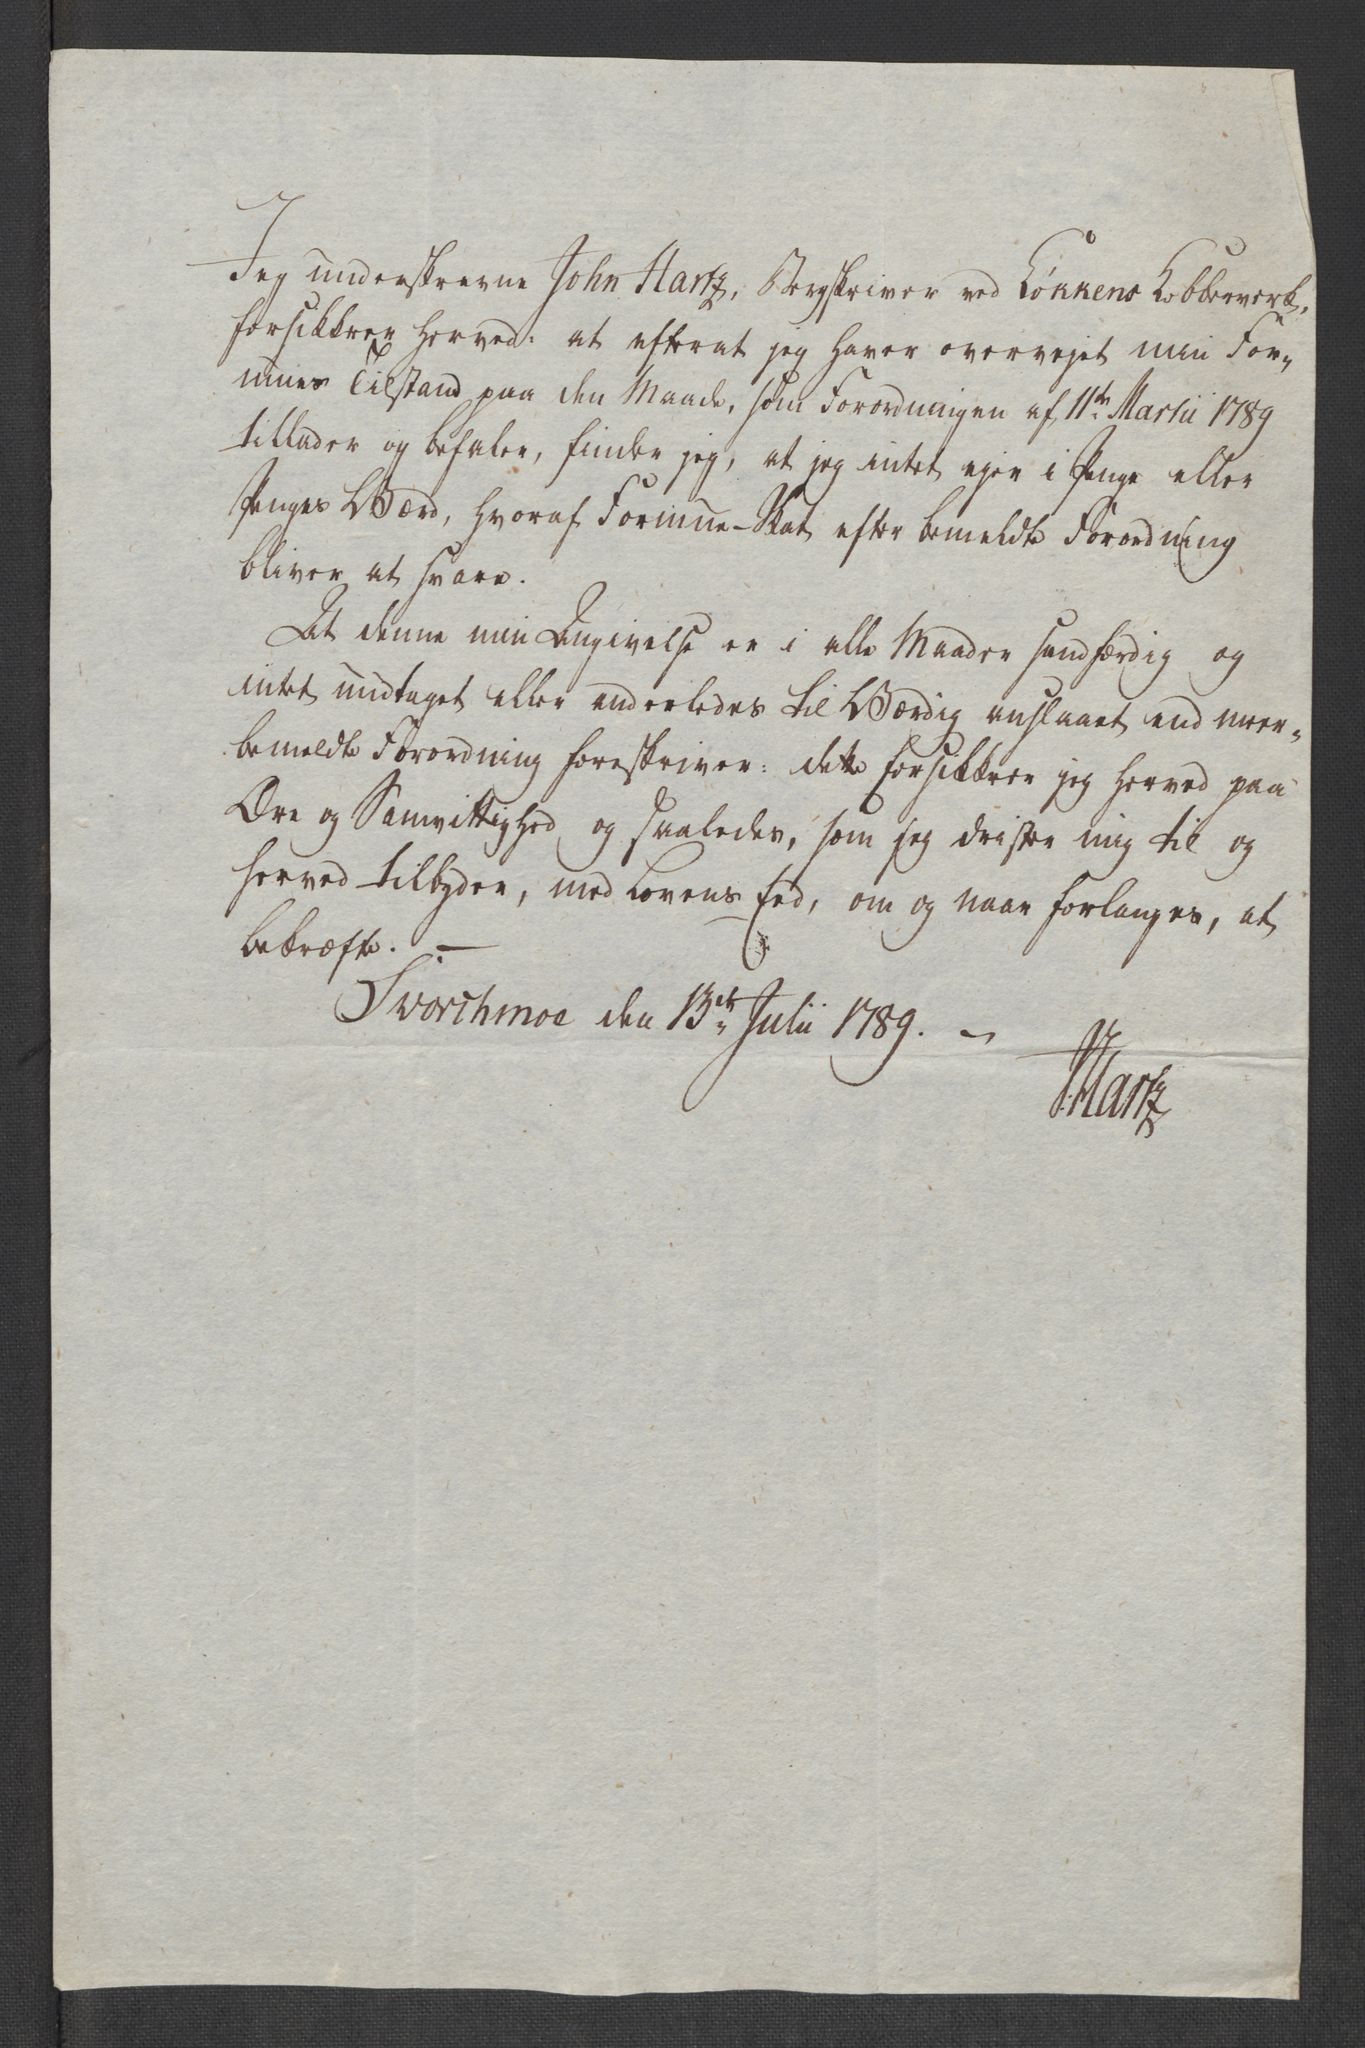 Jeg underskrevne John Hartz, Bergskriver ved Løkkens Kobberverk,
forsikkrer herved: at efterat jeg haver overvejet min For-
mues Tilstand paa den Maade, som Forordningen af 11te Martii 1789
tillader og befaler, finder jeg, at jeg intet ejer i Penge eller
Penges Værd, hvoraf Formue-Skat efter bemeldte Forordning
bliver at svare.
At denne min Angivelse er i alle Maader sandfærdig og
intet undtaget eller anderledes til Værdig anslaaet end meer-
bemeldte Forordning foreskriver: dette forsikkrer jeg herved paa
Ære og Samvittighed og saaledes, som jeg drister mig til og
herved tilbyder, med Lovens Eed, om og naar forlanges, at
bekræfte. —
Svorchmoe den 13de Julii 1789. —
JHartz